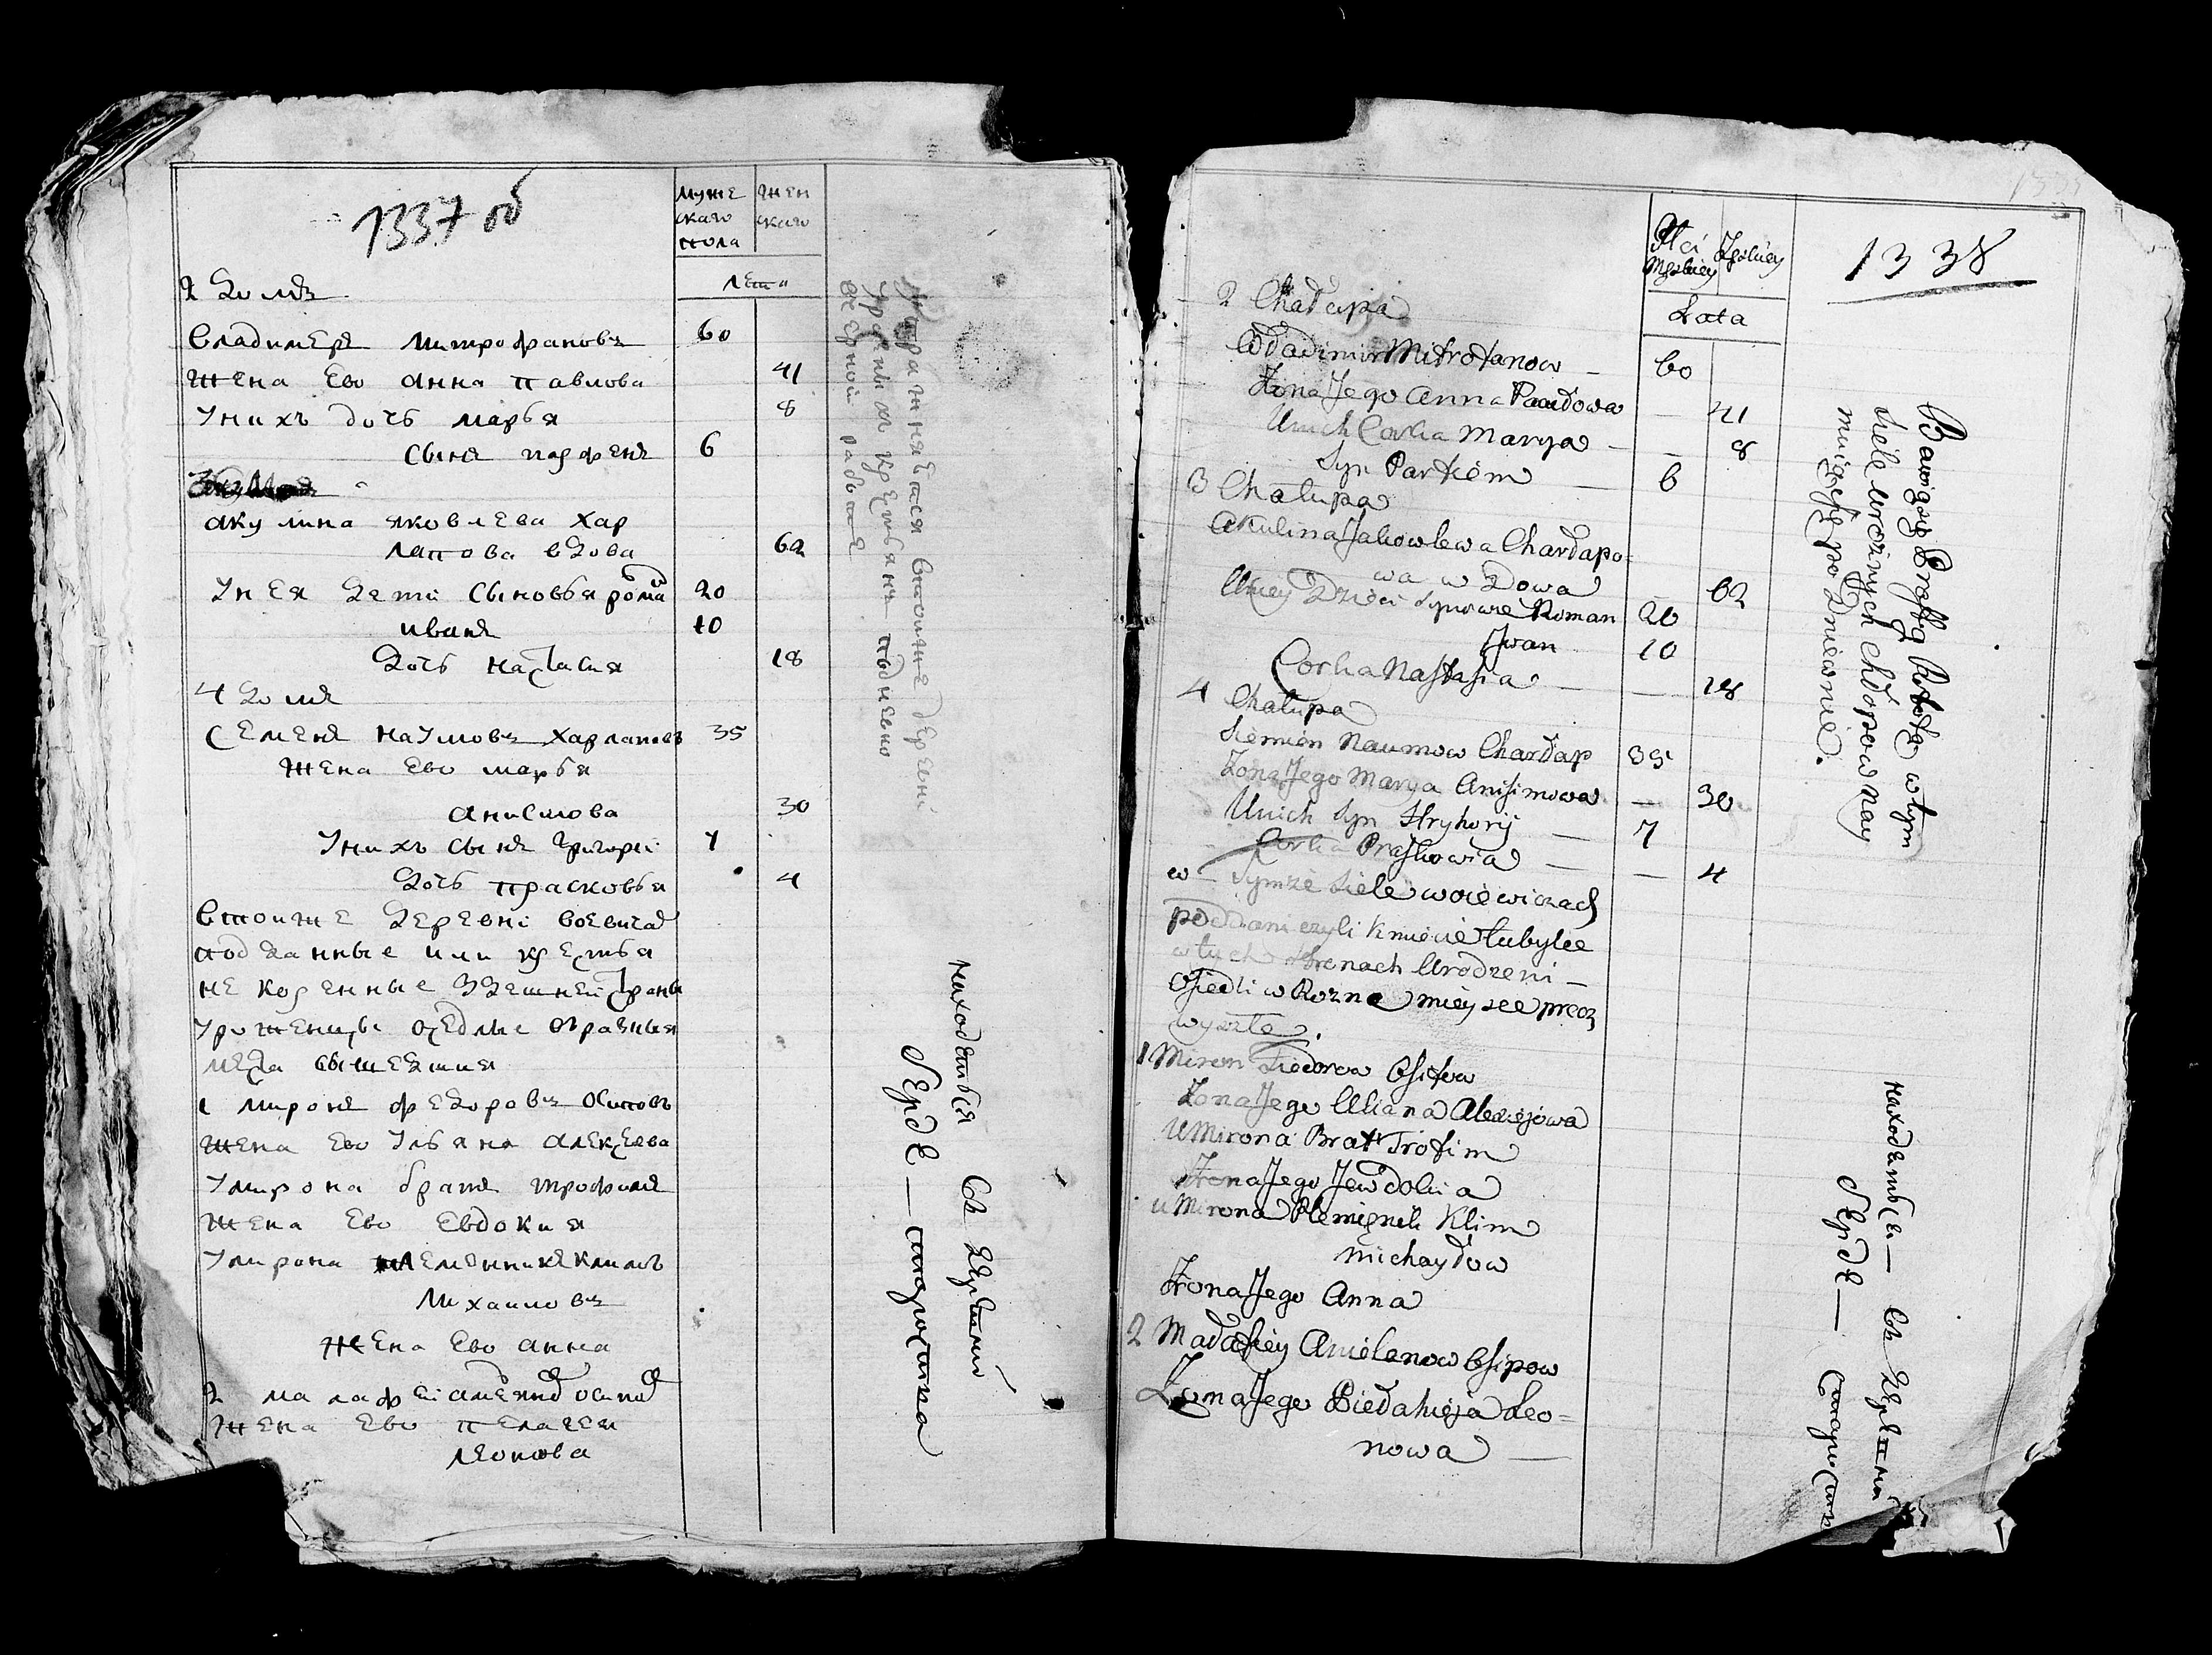 1337 об
муже
скаго
пола
жен
скаго
лета
2 домъ
Владимеръ Митрофановъ 60
жена Ево анна павлова 41
Унихъ дочь марья 8
сынъ парфенъ 6
акулина яковлева хар
лапова вдова 62
Унея дети сыновья рома 20
иванъ 10
дочь настасия 18
4 домъ
Семенъ наумовъ харлаповъ 35
жена Ево марья
анисимова 30
Унихъ сынъ григореи 7
дочь прасковья 4
втоиже деревни воевичах
подданные или крестья
не коренные здешнеи страны
уроженцы оседлые вразныя
места вышедшия
1 миронъ федоровъ осиповъ
жена Ево Ульяна алексеева
Умирона братъ трофимъ
жена Ево Евдокия
Умирона племенникъ климъ
Михаиловъ
жена Ево анна
2 малафеи осипов
жена Ево пелагея
леонова
Упражняетася втоиже деревни
крестьянъ подневно
работе
находаться Въ
Серде — старостина
1338
Płci
Męskiey
Żeńskiey
Lata
2 Chałupa
Władimir Mitrofanow — 60
Żona Jego Anna Pawłowa — 41
Unich Corka Marya — 8
Syn Parfiem — 6
3 Chałupa
Akulina Jakowlewa Charłapo-
wa wdowa 62
Uniey Dzieci Synowie Roman 20
Jwan 10
Corka Nastasia — 18
4 Chałupa
Siemion Naumow Charłap 35
Żona Jego Marya Anisimowa — 30
Unich Syn Hryhorij — 7
Corka Praskowia — 4
w Tymże Siele woiewiczach
poddani czyli kmiecie tubylce
w tych stronach Urodzeni —
Osiedli w Rozne mieysce precz
wyszłe.
1 Miron Fiedorow Osifow
Żona Jego Uliana Alexiejowa
U Mirona Brat Trofim
Żona Jego Jewdokia
u Mirona Plemięnik Klim
Michayłow
Żona Jego Anna
2 Małafiey Osipow
Żona Jego Piełahieja Leo-
nowa —
Bawią się Robotą w tym
Siele Chłopow
po Dniewnie.
находатьси — Въ
Серде — старостин